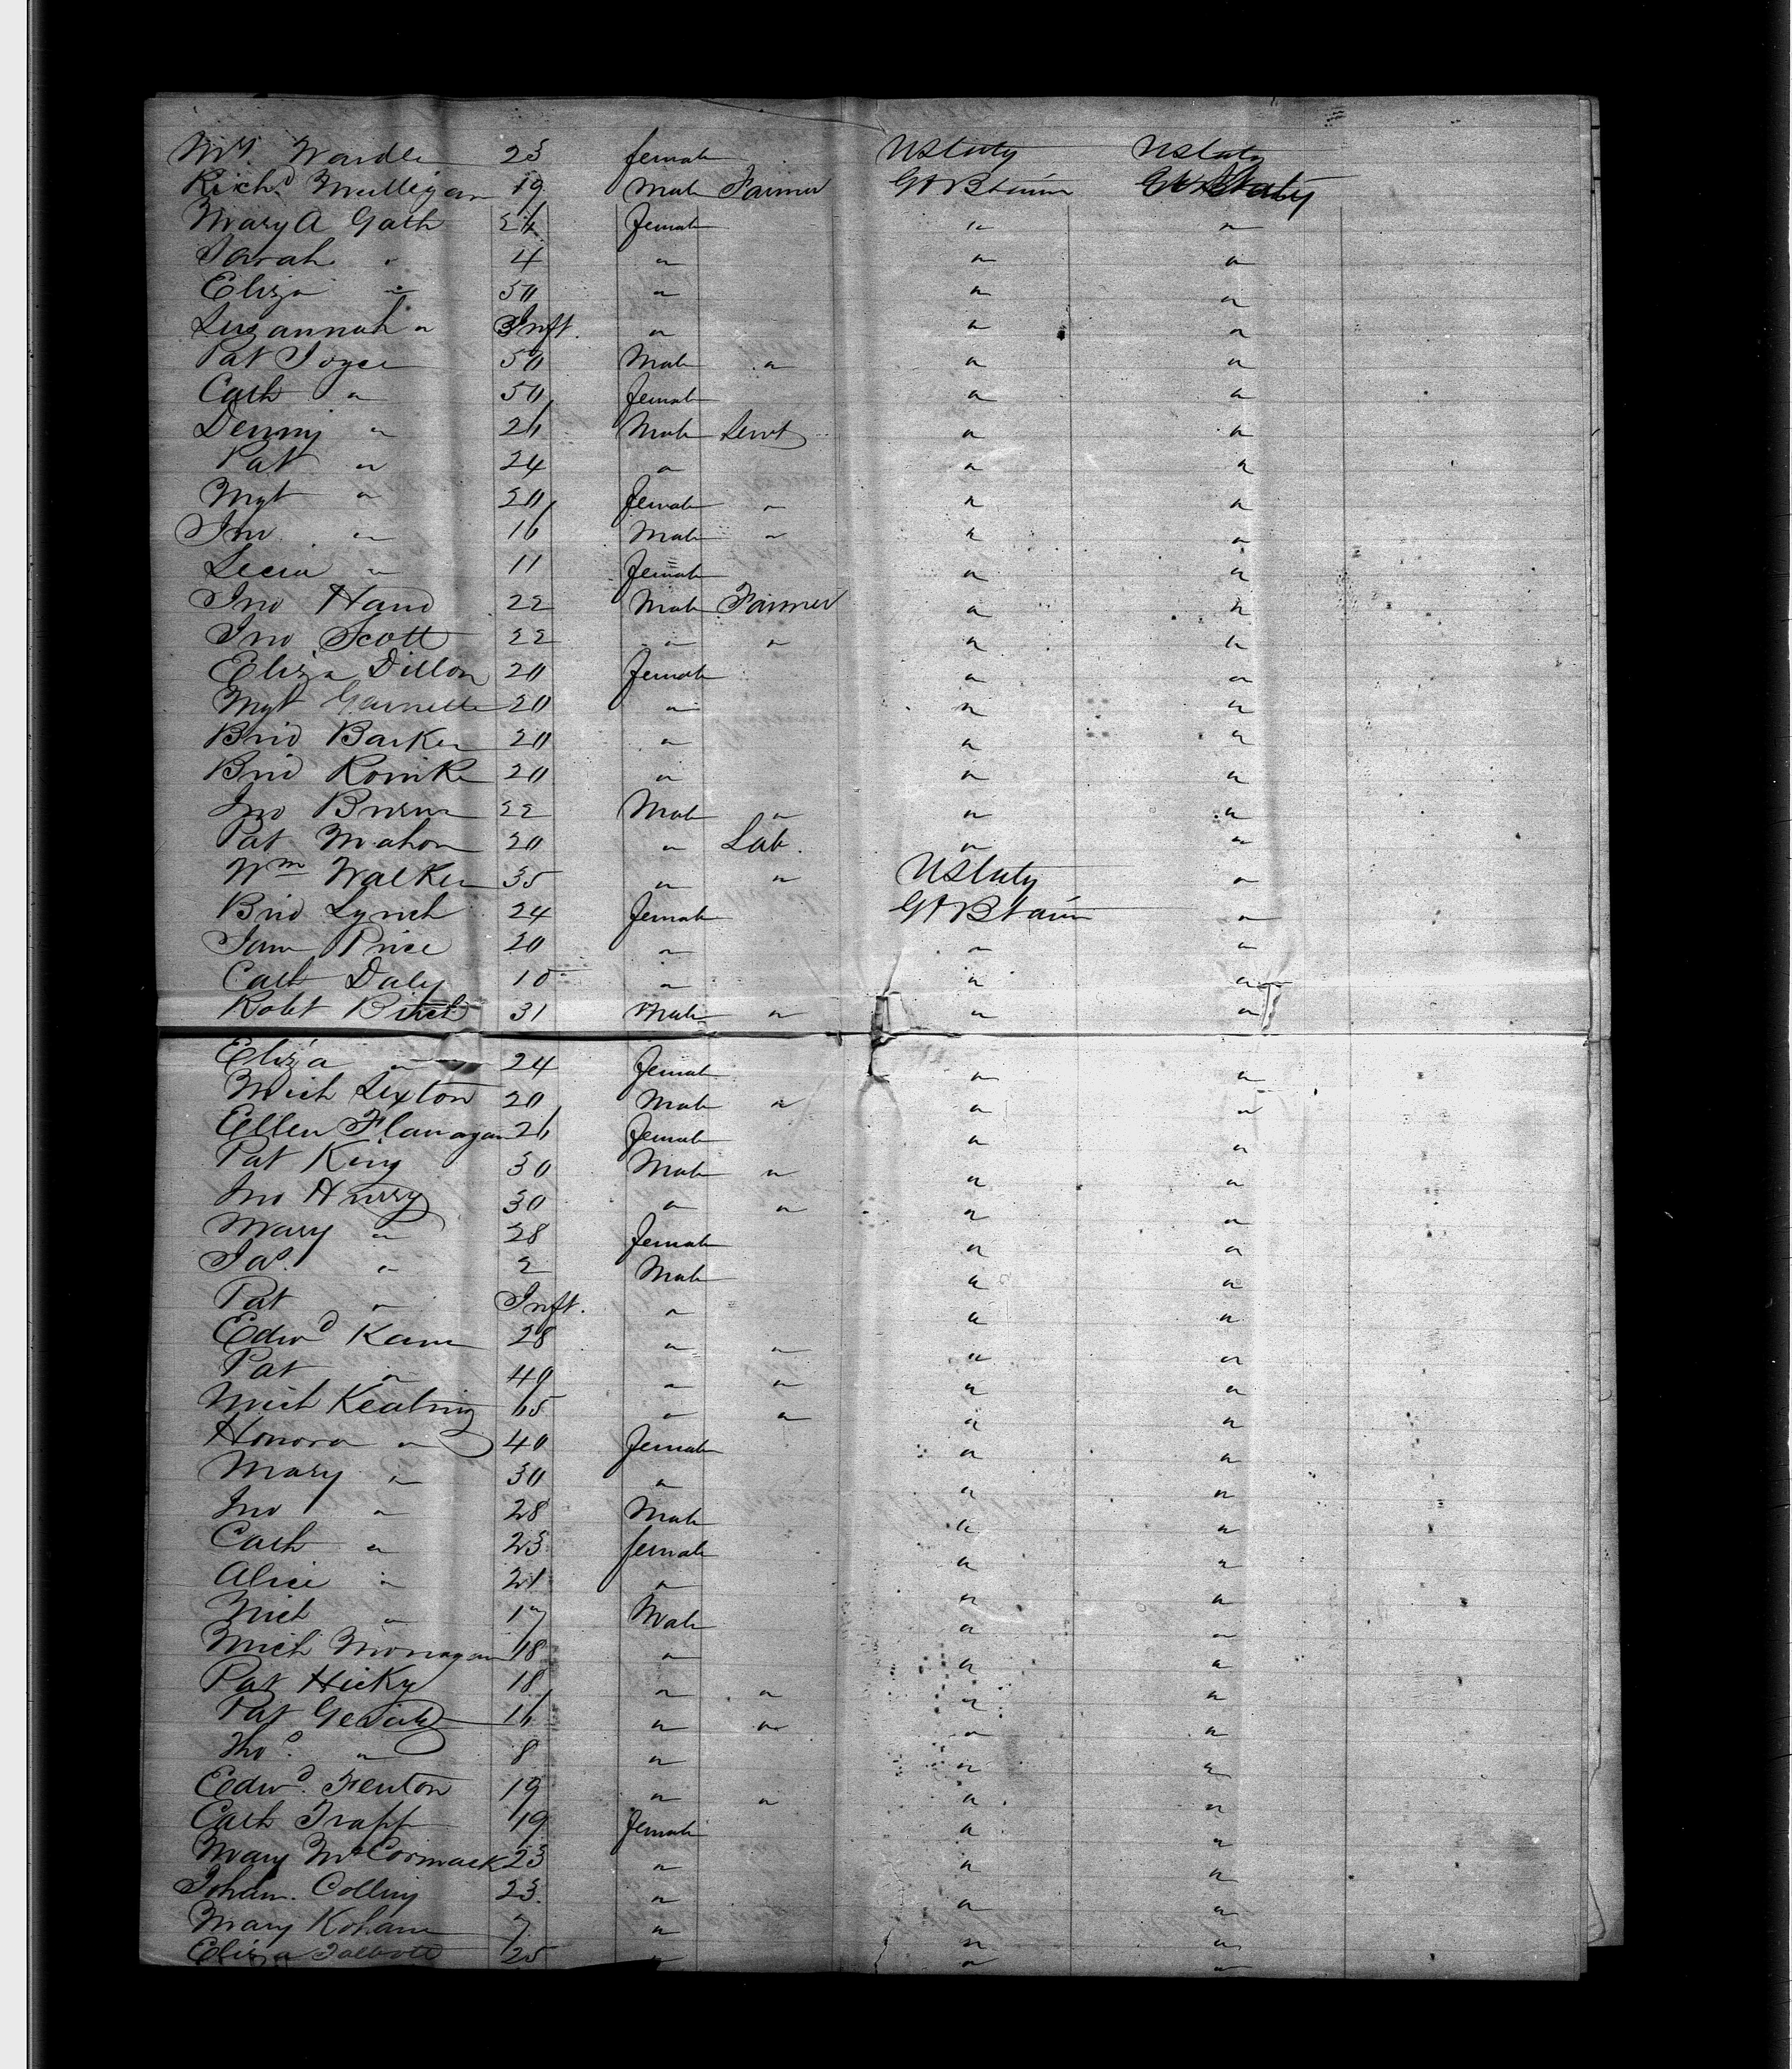 Mrs. Wardle 23 female U States U States
Richd Mulligan 19 Male Farmer Gt Britain U States
Mary A Gath 24 female " "
Sarah " 4 " " "
Eliza " 50 " " "
Susannah " Inft. " " "
Pat Joyce 50 Male " " "
Cath " 50 female " "
Denny " 26 Male Servt " "
Pat " 24 " " "
Mgt " 20 female " " "
Jno " 16 Male " " "
Lecia " 11 female " "
Jno Hand 22 Male Farmer " "
Jno Scott 22 " " " "
Eliza Dillon 20 female " "
Mgt 20 " " "
Brid Barker 20 " " "
Brid 20 " " "
Jno Burns 22 Male " " "
Pat Mahon 20 " Lab. " "
Wm Walker 35 " " U States "
Brid Lynch 24 female Gt Britain "
Jane Price 20 " " "
Cath Daly 10 " " "
Robt 31 Male " " "
Eliza " 24 female " "
Mich Sexton 20 Male " " "
Ellen Flanagan 26 female " "
Pat King 30 Male " " "
Jno Hurry 30 " " " "
Mary " 28 female " "
Jas. " 2 Male " "
Pat " Inft. " " "
Edwd Kane 28 " " " "
Pat " 40 " " " "
Mich Keating 65 " " " "
Honora " 40 female " "
Mary " 30 " " "
Jno " 28 Male " "
Cath " 23 female " "
Alice " 21 " " "
Mich " 17 Male " "
Mich Monagan 18 " " "
Pat Hicky 18 " " " "
Pat 16 " " " "
Thos. " 8 " " "
Edwd. Fenton 19 " " " "
Cath Trapp 19 female " "
Mary McCormack 23 " " "
Johan. Collins 23 " " "
Mary Kohane 7 " " "
Eliza Talbott 25 " " "